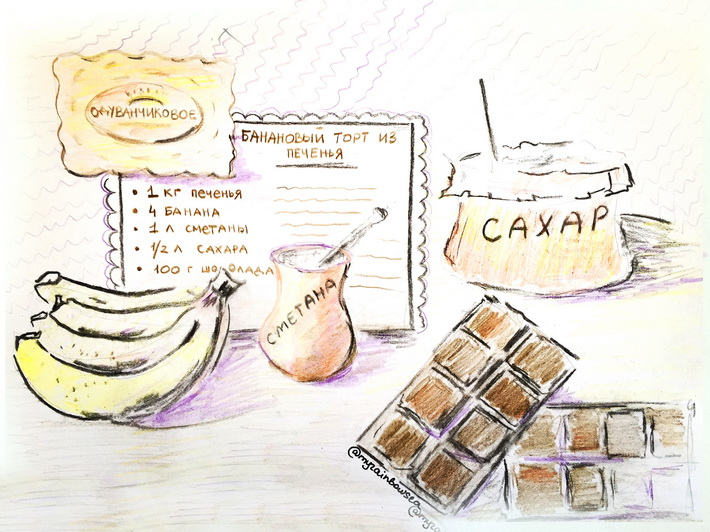 ОДУВАНЧИКОВОЕ
БАНАНОВЫЙ ТОРТ ИЗ
ПЕЧЕНЬЯ
• 1 кг печенья
• 4 БАНАНА
• 1 л сметаны
• 1/2 л САХАРА
• 100 г шоколада
СМЕТАНА
САХАР
@myrainbowsea
@myra